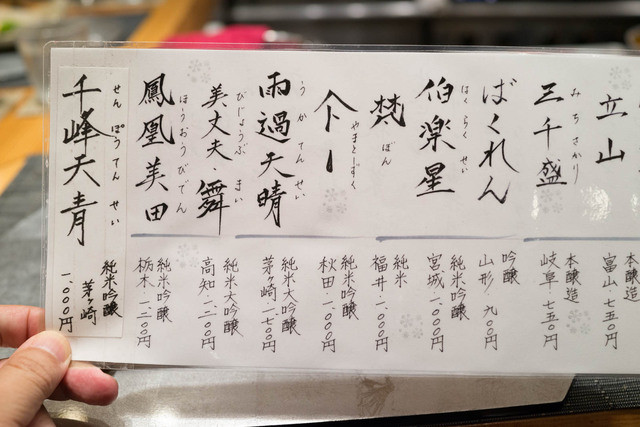 立山
本醸造
富山 七五〇円
三千盛
みちさかり
本醸造
岐阜 七五〇円
ばくれん
吟醸
山形 九〇〇円
伯楽星
はくらくせい
純米吟醸
宮城 一、〇〇〇円
梵
ぼん
純米
福井 一、〇〇〇円
やまとしずく
純米吟醸
秋田 一、〇〇〇円
雨過天晴
うかてんせい
純米大吟醸
茅ヶ崎 一、七〇〇円
美丈夫・舞
びじょうぶ まい
純米大吟醸
高知
鳳凰美田
ほうおうびでん
純米吟醸
栃木 一、二〇〇円
千峰天青
せんぽうてんせい
純米吟醸
茅ヶ崎
一、〇〇〇円